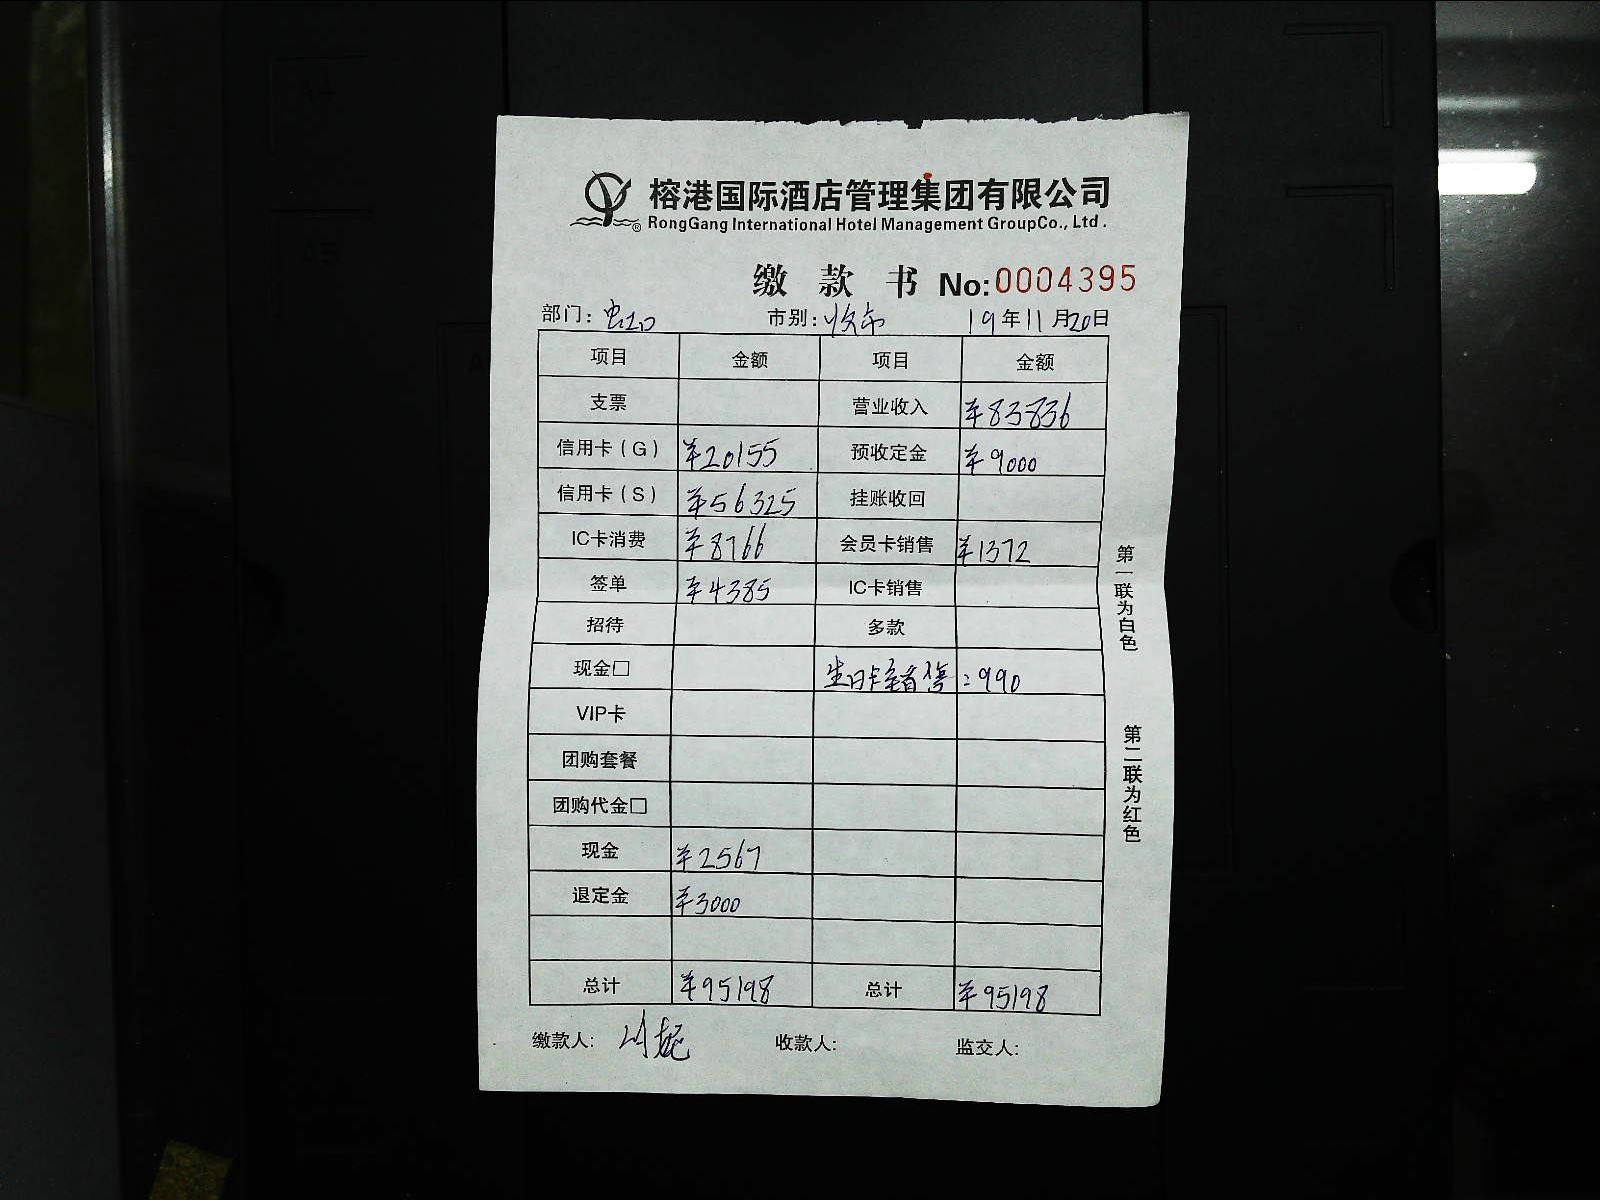 榕港国际酒店管理集团有限公司
® RongGang International Hotel Management GroupCo., Ltd.
缴 款 书 No:0004395
部门: 虹口 市别: 收市 19年11月20日
项目 金额 项目 金额
支票 营业收入 ¥83836
信用卡(G) ¥20155 预收定金 ¥9000
信用卡(S) ¥56325 挂账收回
IC卡消费 ¥8766 会员卡销售 ¥1372
签单 ¥4385 IC卡销售
招待 多款
现金□ 生日卡销售: 990
VIP卡
团购套餐
团购代金□
现金 ¥2567
退定金 ¥3000
总计 ¥95198 总计 ¥95198
缴款人: 收款人: 监交人:
第一联为白色
第二联为红色
A4
A5